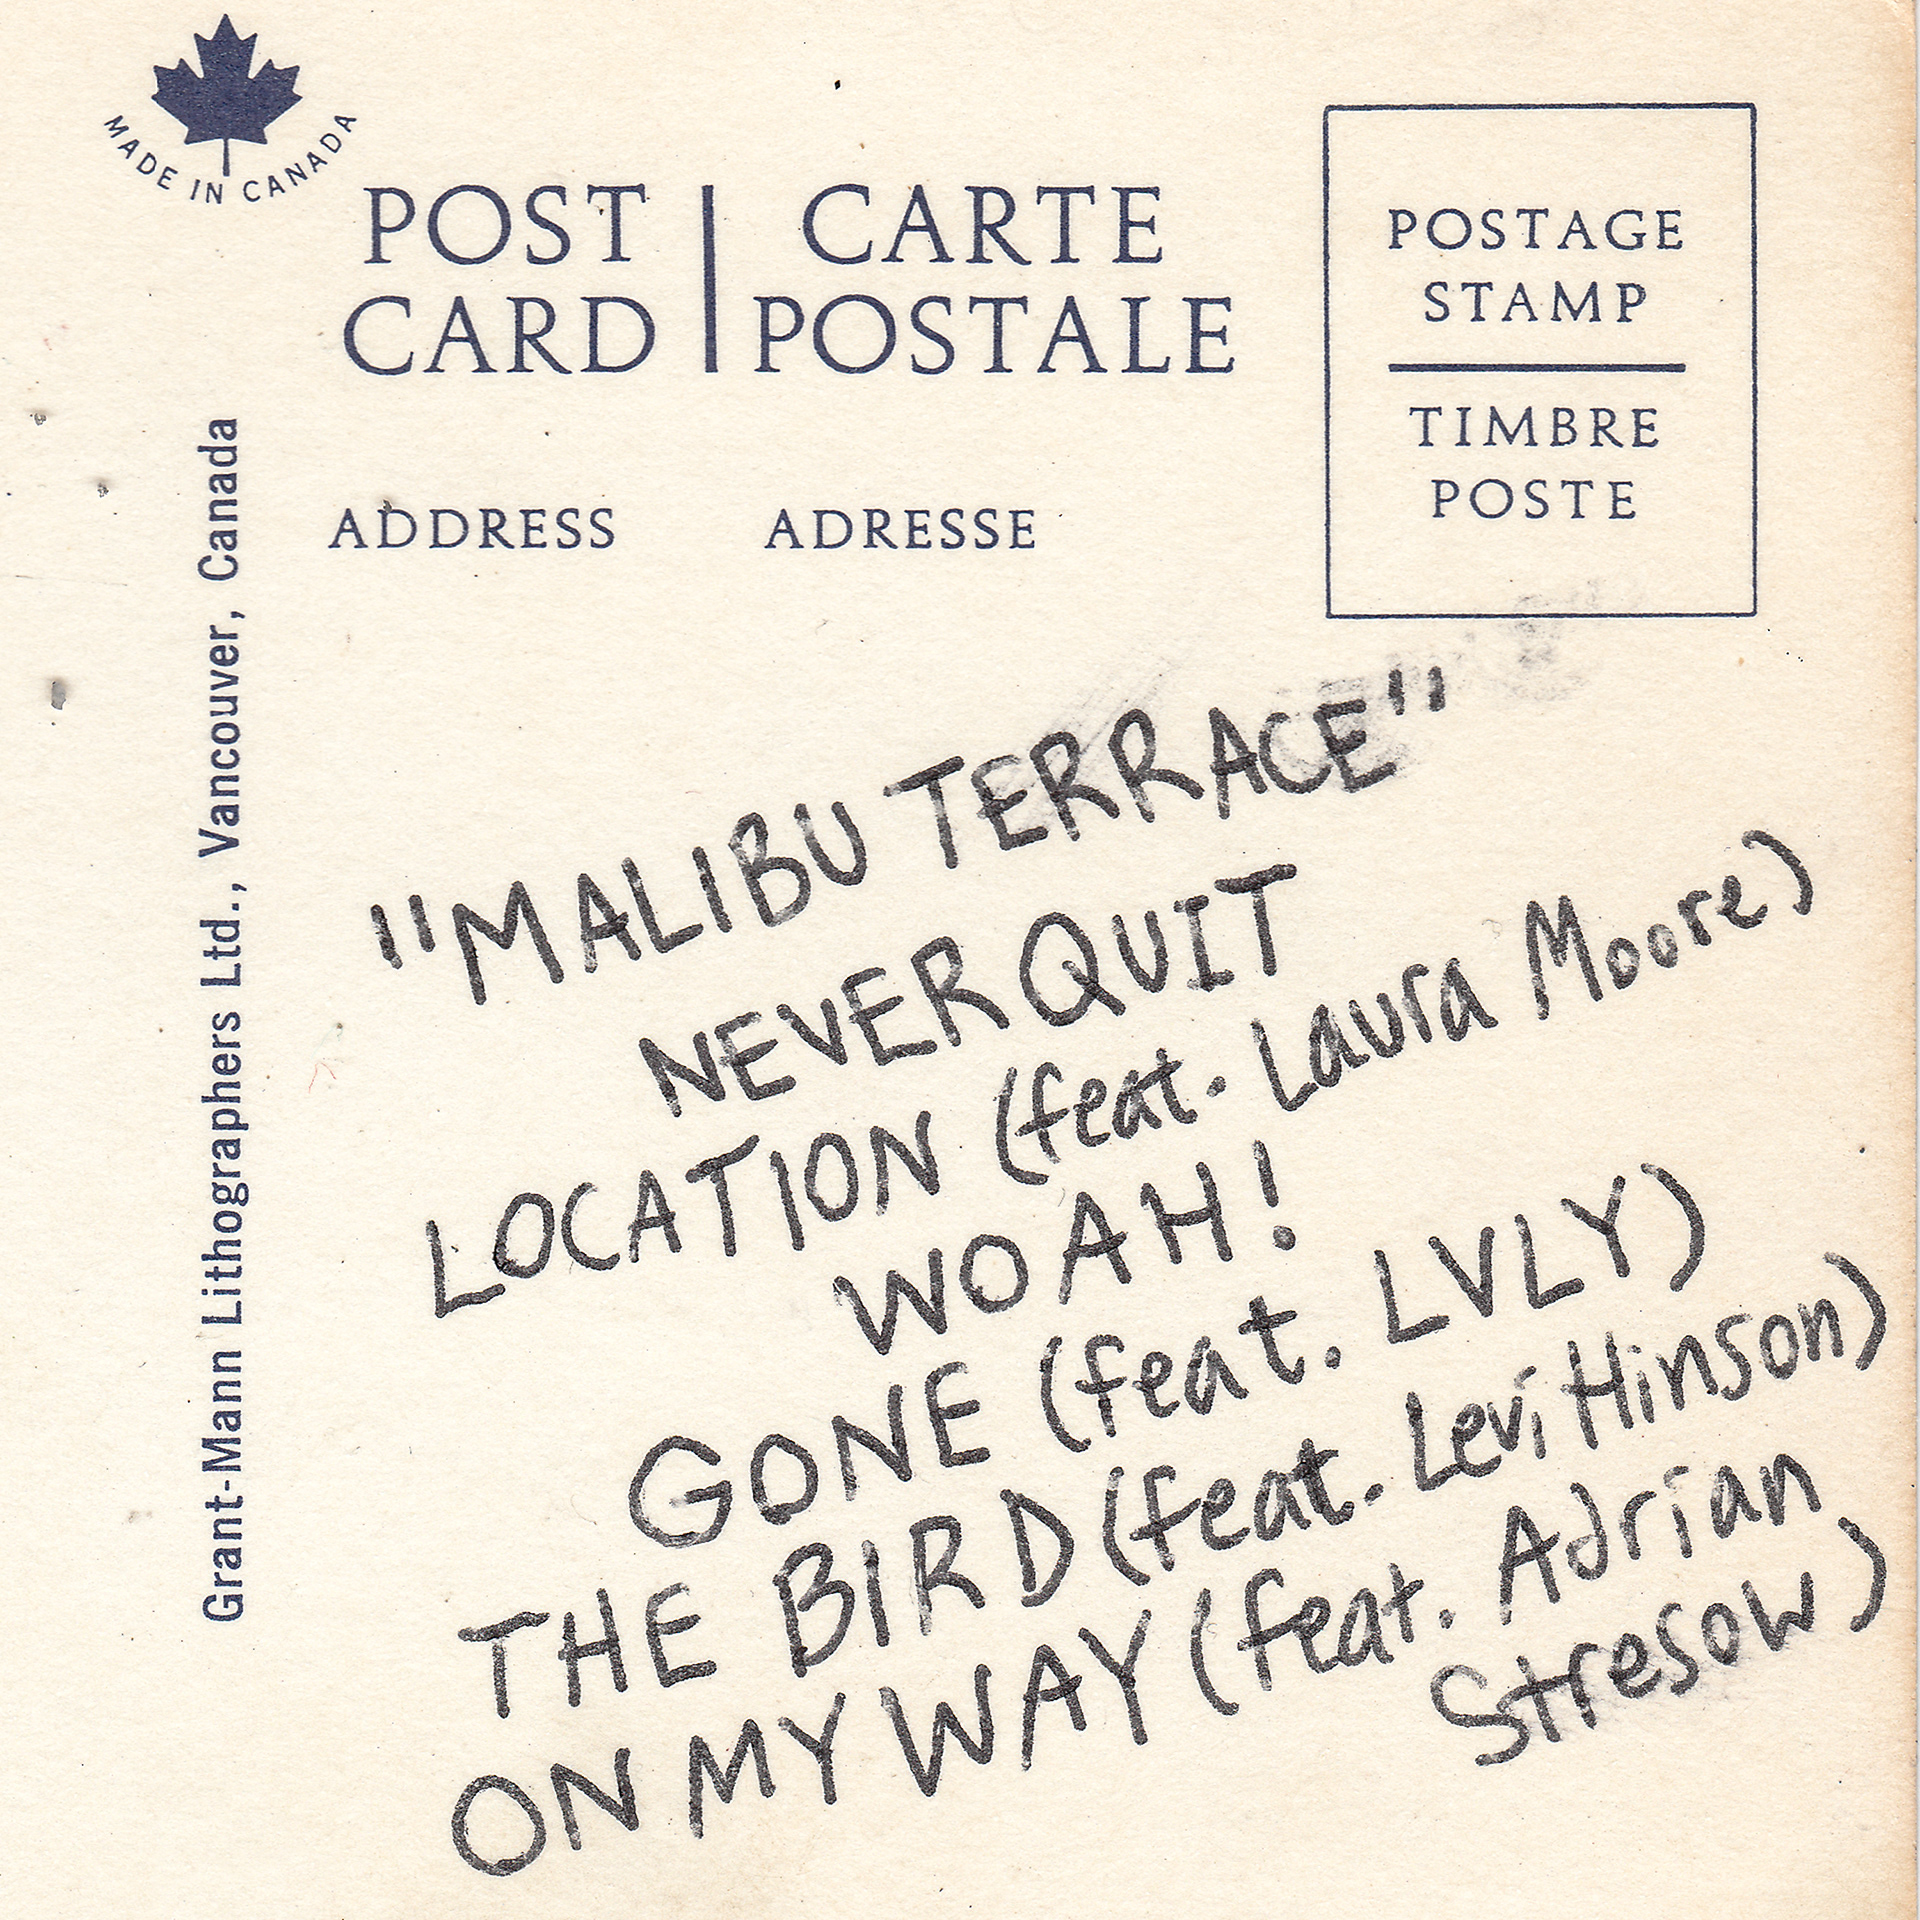 MADE IN CANADA
POST CARD | CARTE POSTALE
POSTAGE
STAMP
TIMBRE
POSTE
ADDRESS ADRESSE
Grant-Mann Lithographers Ltd., Vancouver, Canada
"MALIBU TERRACE"
NEVER QUIT
LOCATION (feat. Laura Moore)
WOAH!
GONE (feat. LVLY)
THE BIRD (feat. Levi Hinson)
ON MY WAY (feat. Adrian
Stresow)